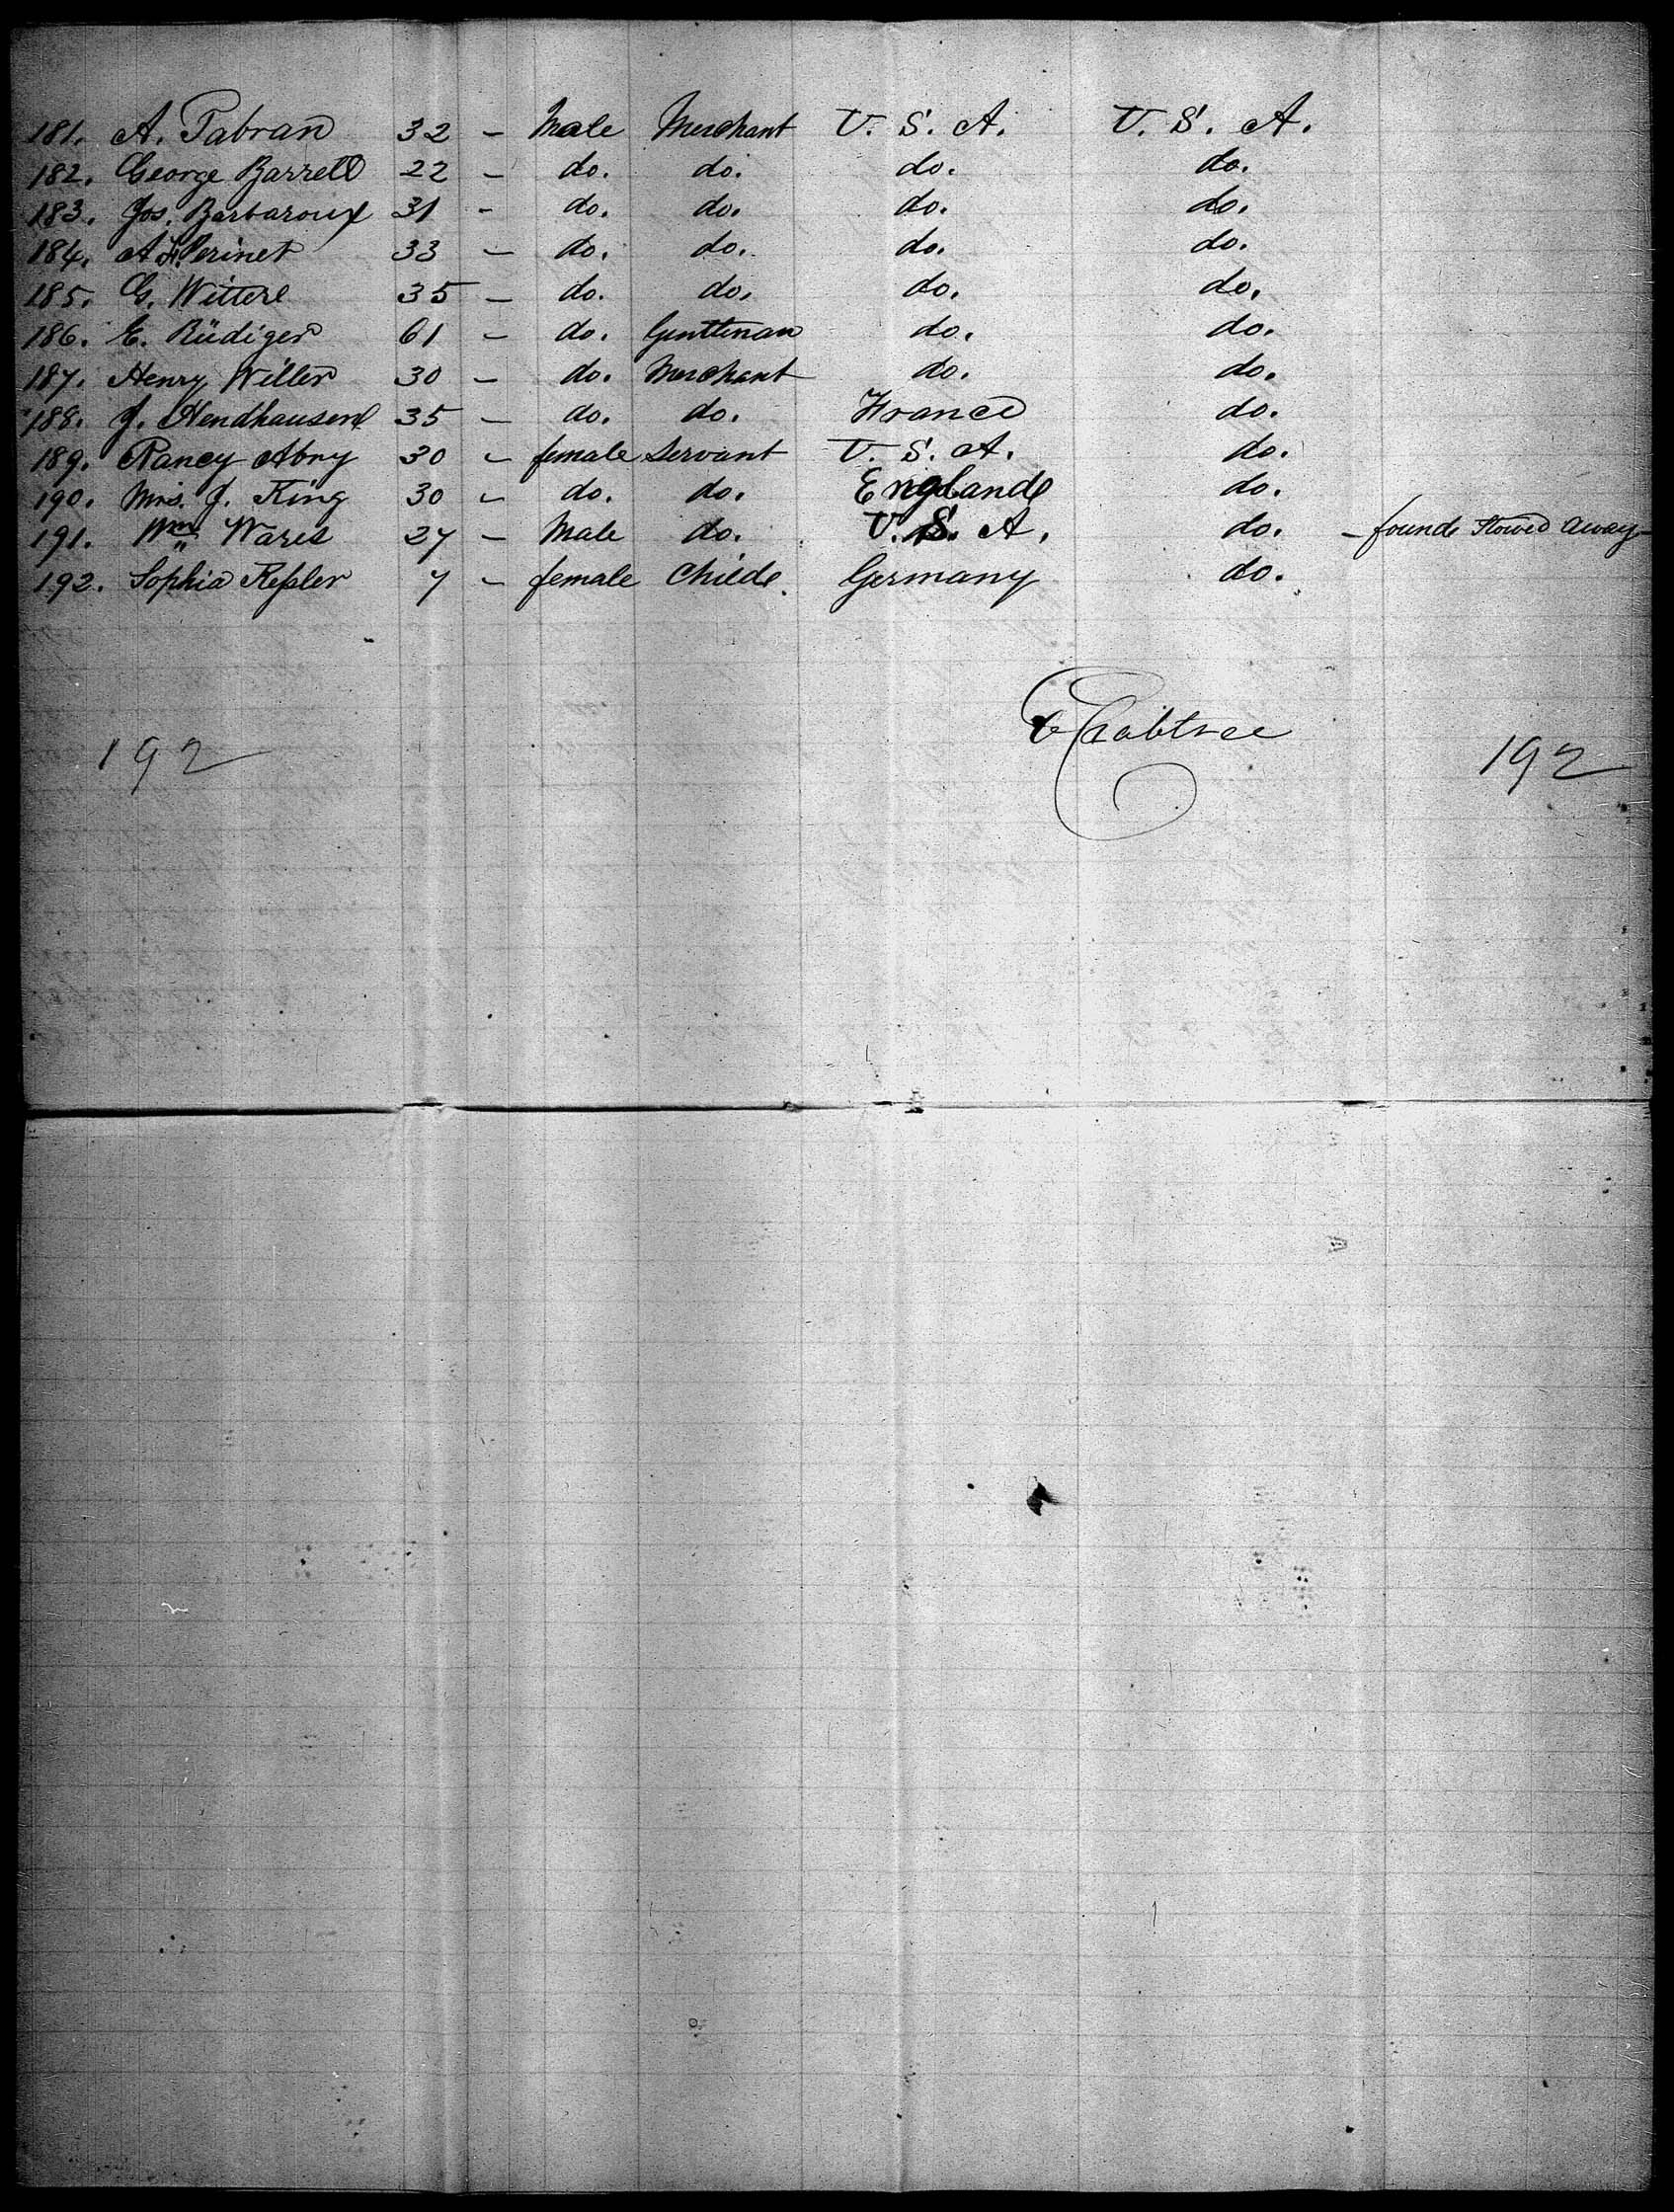 181. A. Tabran 32 - Male Merchant U. S. A. U. S. A.
182. George Barrell 22 - do. do. do. do.
183. Jos. Barbaroux 31 - do. do. do. do.
184. A F. Perinet 33 - do. do. do. do.
185. G. Witterl 35 - do. do. do. do.
186. E. Rüdiger 61 - do. Gentleman do. do.
187. Henry Willer 30 - do. Merchant do. do.
188. J. Hendhausen 35 - do. do. France do.
189. Nancy Abry 30 - female Servant U. S. A. do.
190. Mrs. J. King 30 - do. do. England do.
191. Wm Wares 27 - Male do. U. S. A. do. - found Stowed away -
192. Sophia Keſsler 7 - female Child. Germany do.
Crabtree
192 192